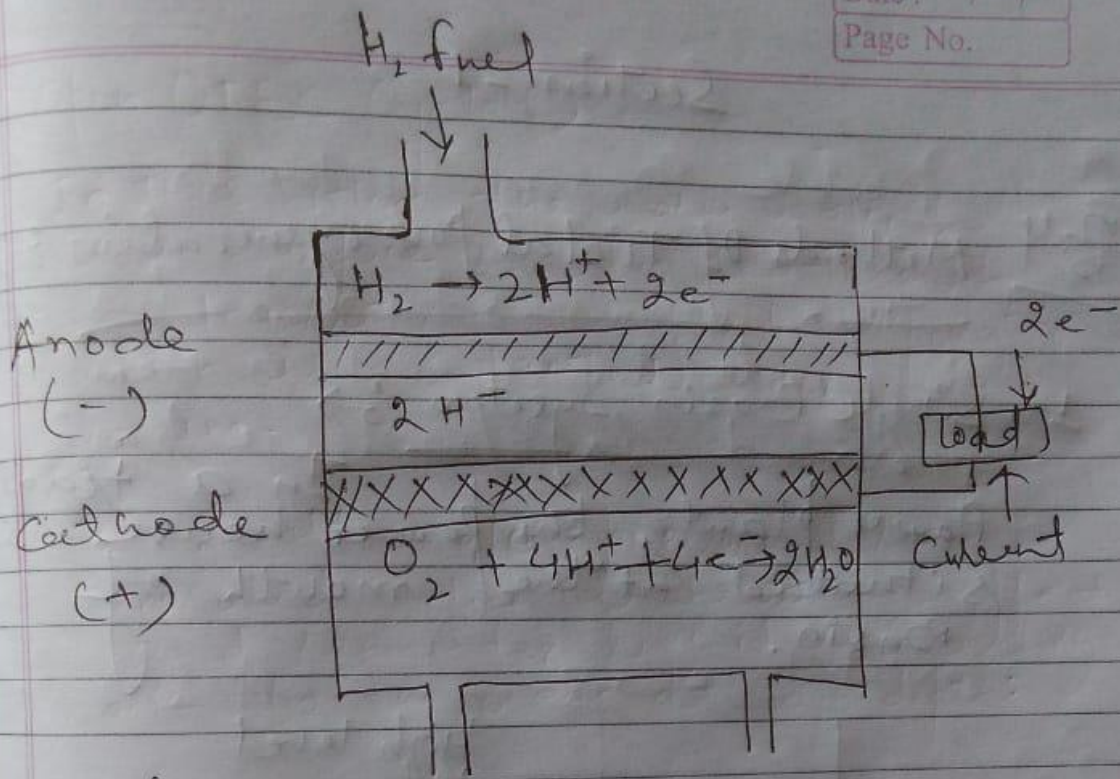 Page No.
H₂ fuel
↓
H₂ → 2H⁺ + 2e⁻
Anode
(-)
2e⁻
2H⁻
load
Cathode
(+)
O₂ + 4H⁺ + 4e⁻ → 2H₂O
Current